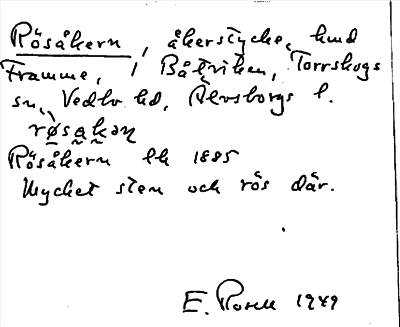 Rösåkern, åkerstycke, hmd
Framme, i Båtviken, Torrskogs
sn, Vedbo hd, Älvsborgs l.
røsakən
Rösåkern lk 1885
Mycket sten och rös där.
E. Rosell 1949